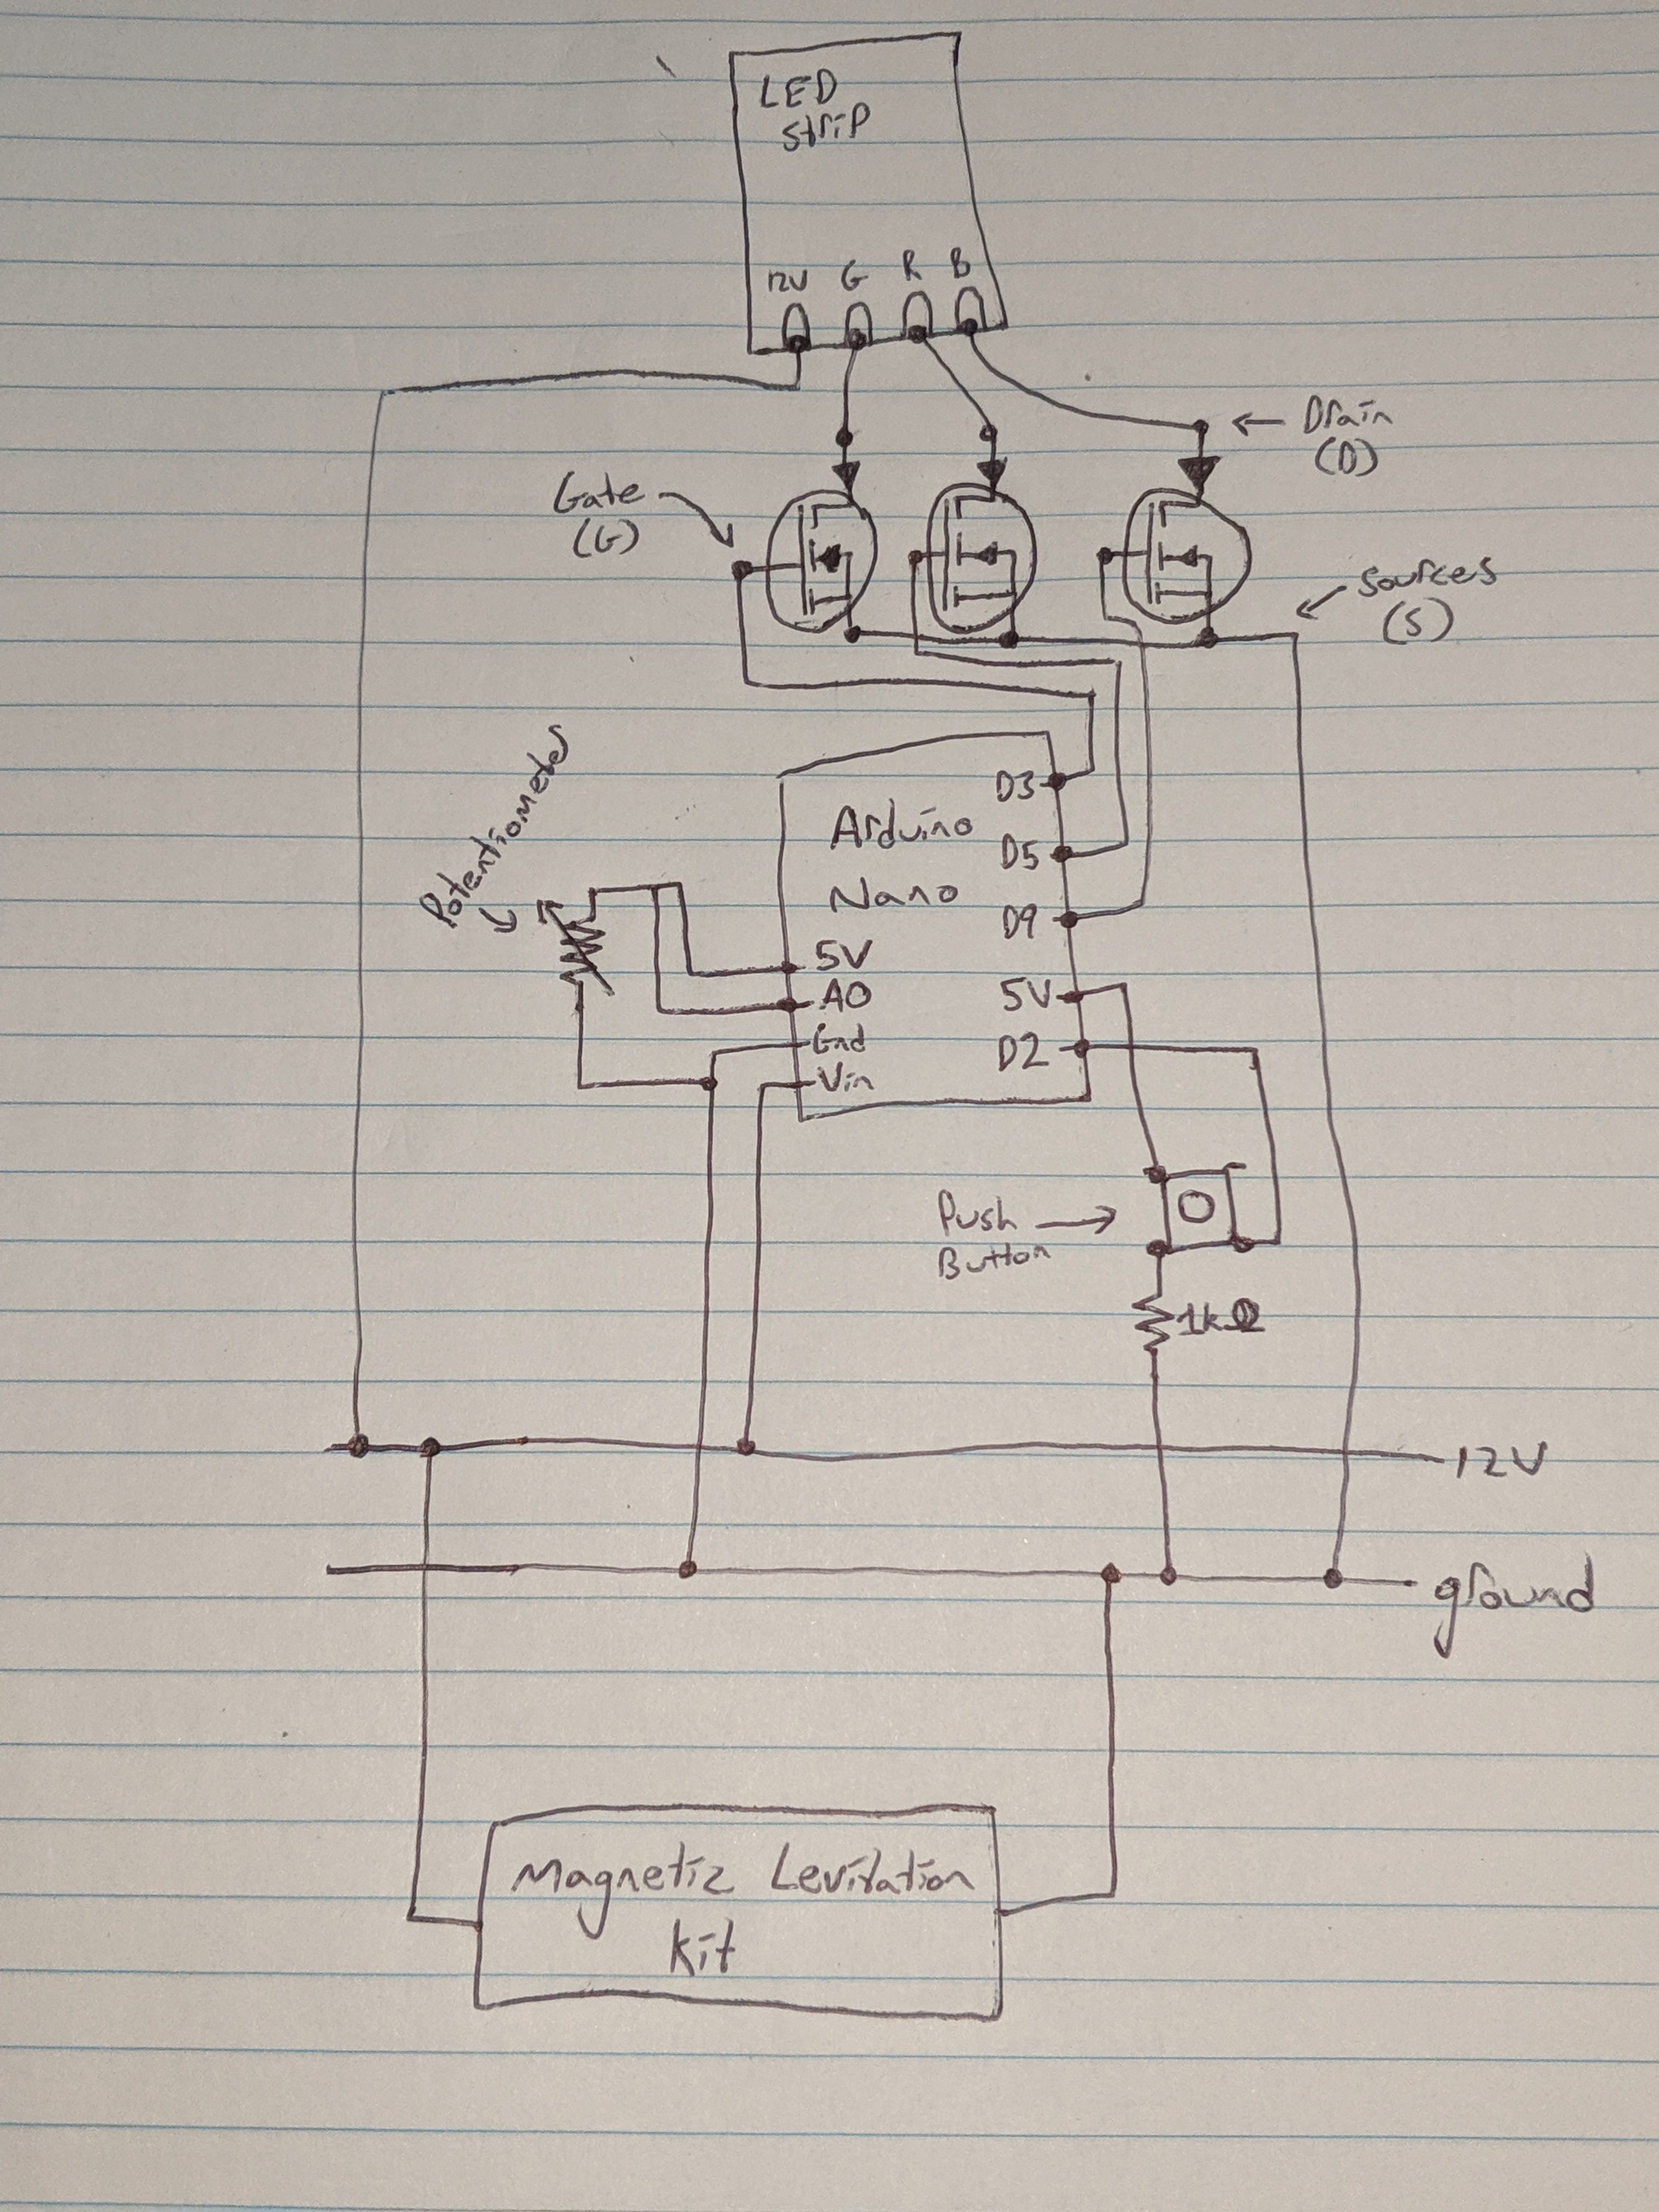 LED
strip
12V G R B
Drain
(D)
Gate
(G)
Sources
(S)
Potentiometer
D3
Arduino
D5
Nano
D9
5V
5V
A0
Gnd
D2
Vin
Push
Button
1kΩ
12V
ground
Magnetic Levitation
Kit